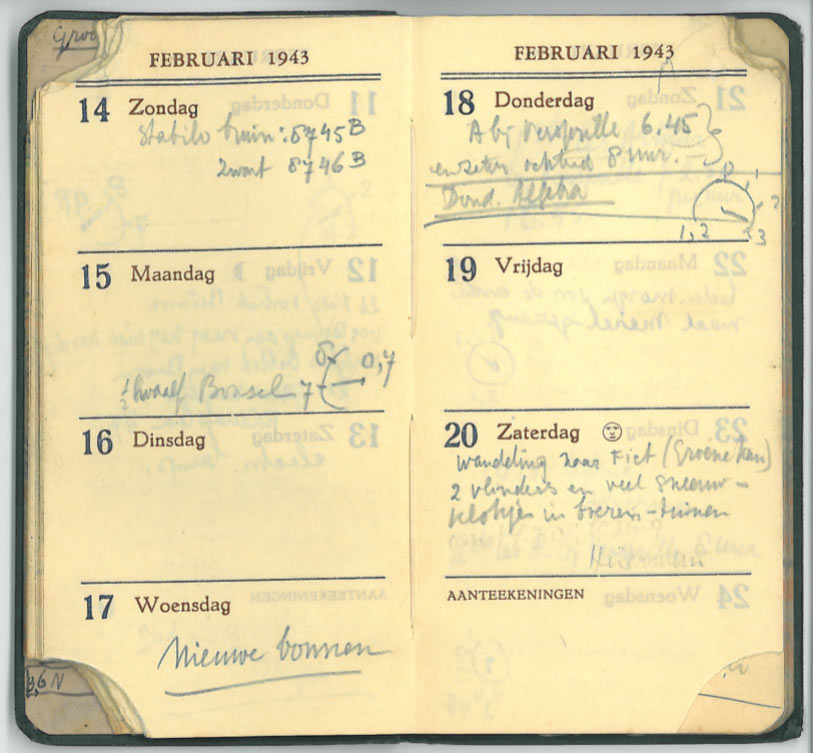 Groo
FEBRUARI 1943
14 Zondag
Stabilo bruin: 8745B
Zwart 8746B
15 Maandag
7 0,7
16 Dinsdag
17 Woensdag
Nieuwe bonnen
3,6 N
FEBRUARI 1943
18 Donderdag
A bij 6.45
ochtend 8 uur.
Dond.
0 1
2
1,2 3
19 Vrijdag
20 Zaterdag
Wandeling naar Fiet (Groene
2 vlinders en veel sneeuw-
klokjes in boeren-tuinen
AANTEEKENINGEN